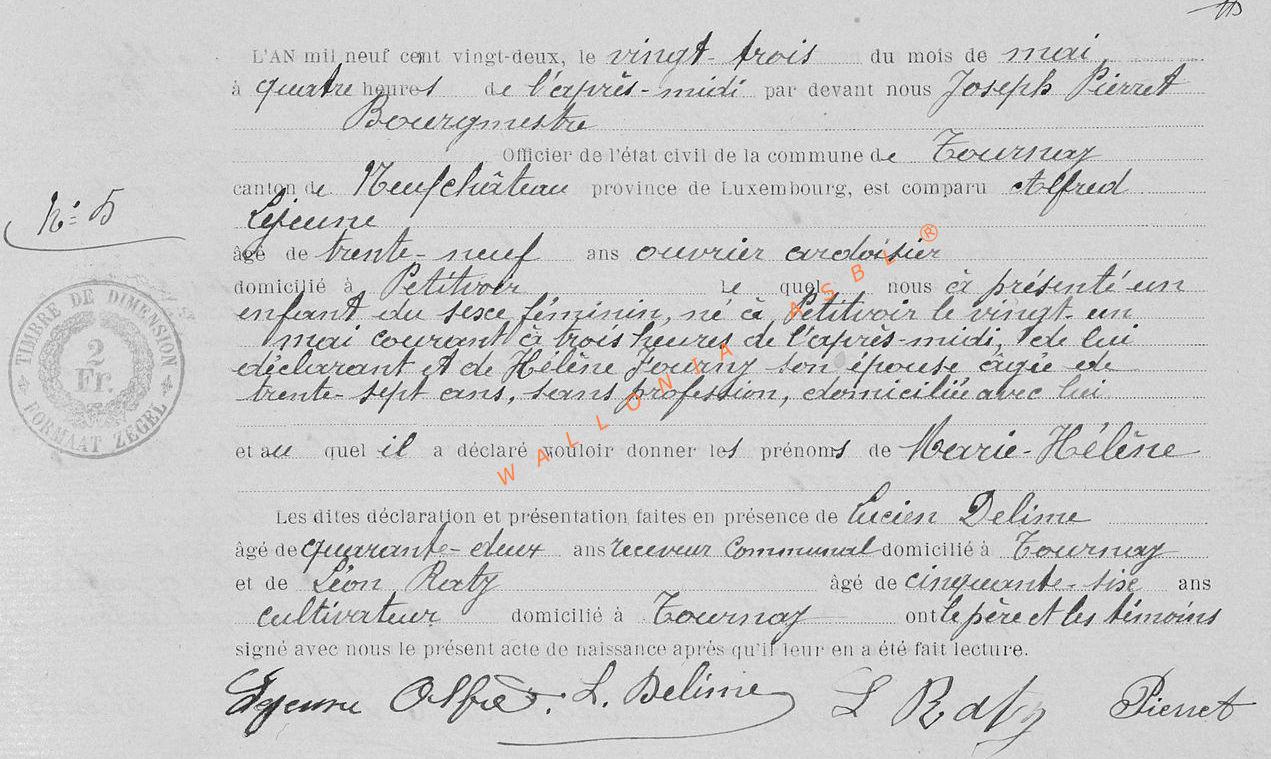 L'AN mil neuf cent vingt-deux, le vingt-trois du mois de mai
à quatre heures de l'après-midi par devant nous Joseph Pierret
Bourgmestre
Officier de l'état civil de la commune de Tournay
canton de Neufchâteau province de Luxembourg, est comparu Alfred
Lejeune
N° 5
âgé de trente-neuf ans ouvrier ardoisier
domicilié à Petitvoir le quel nous à présenté un
enfant du sexe féminin, né à Petitvoir le vingt-un
mai courant à trois heures de l'après-midi, de lui
déclarant et de Hélène Fourny son épouse âgée de
trente-sept ans, sans profession, domiciliée avec lui
TIMBRE DE DIMENSION
2
Fr.
FORMAAT ZEGEL
WALLONIA ASBL ®
et au quel il a déclaré vouloir donner les prénoms de Marie-Hélène
Les dites déclaration et présentation faites en présence de Lucien Delime
âgé de quarante-deux ans receveur communal domicilié à Tournay
et de Léon Raty âgé de cinquante-six ans
cultivateur domicilié à Tournay ont le père et les témoins
signé avec nous le présent acte de naissance après qu'il leur en a été fait lecture.
Lejeune Alfred. L. Delime L Raty Pierret